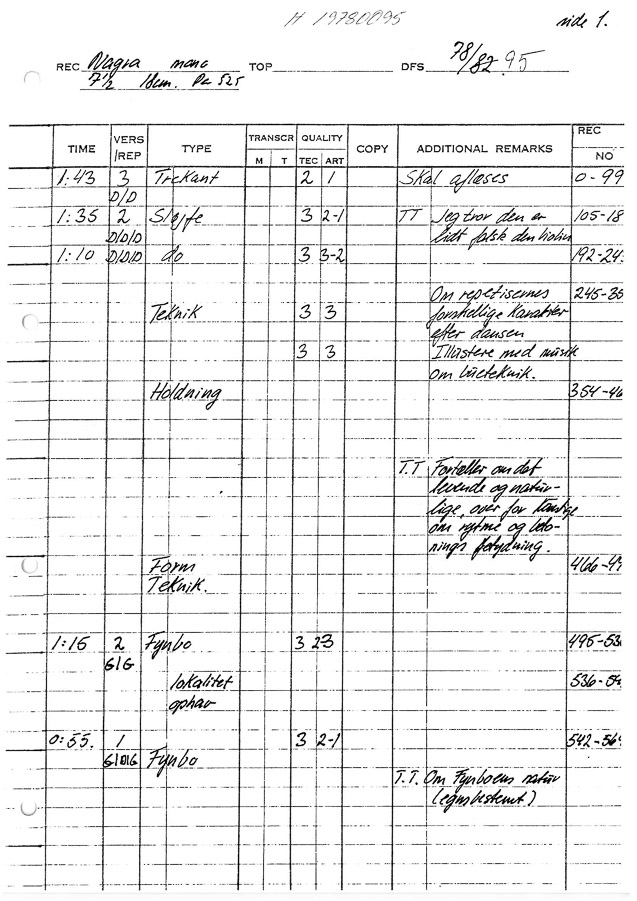 H 19780095
side 1.
REC Nagra mono TOP DFS 78/82.95
7½ 18cm. Per 525
TIME VERS /REP TYPE TRANSCR M T QUALITY TEC ART COPY ADDITIONAL REMARKS REC NO
1:43 3 Trekant 2 1 Skal aflæses 0-99
D/D
1:35 2 Sløjfe 3 2-1 TT Jeg tror den er 105-18
D/D/D lidt falsk den violin
1:10 D/D/D do 3 3-2 192-24
Om repetisernes 245-35
Teknik 3 3 forskellige karakter
efter dansen
3 3 Illustere med musik
om bueteknik.
Holdning 354-46
T.T Fortæller om det
levende og natur-
lige, over for kunstige
om rytme og beto-
nings betydning.
Form 466-49
Teknik.
1:15 2 Fynbo 3 2-3 495-53
G/G
lokalitet 536-54
ophav
0:55. 1 3 2-1 542-56
G/D/G Fynbo
T.T. Om Fynboens natur
(egnsbestemt)